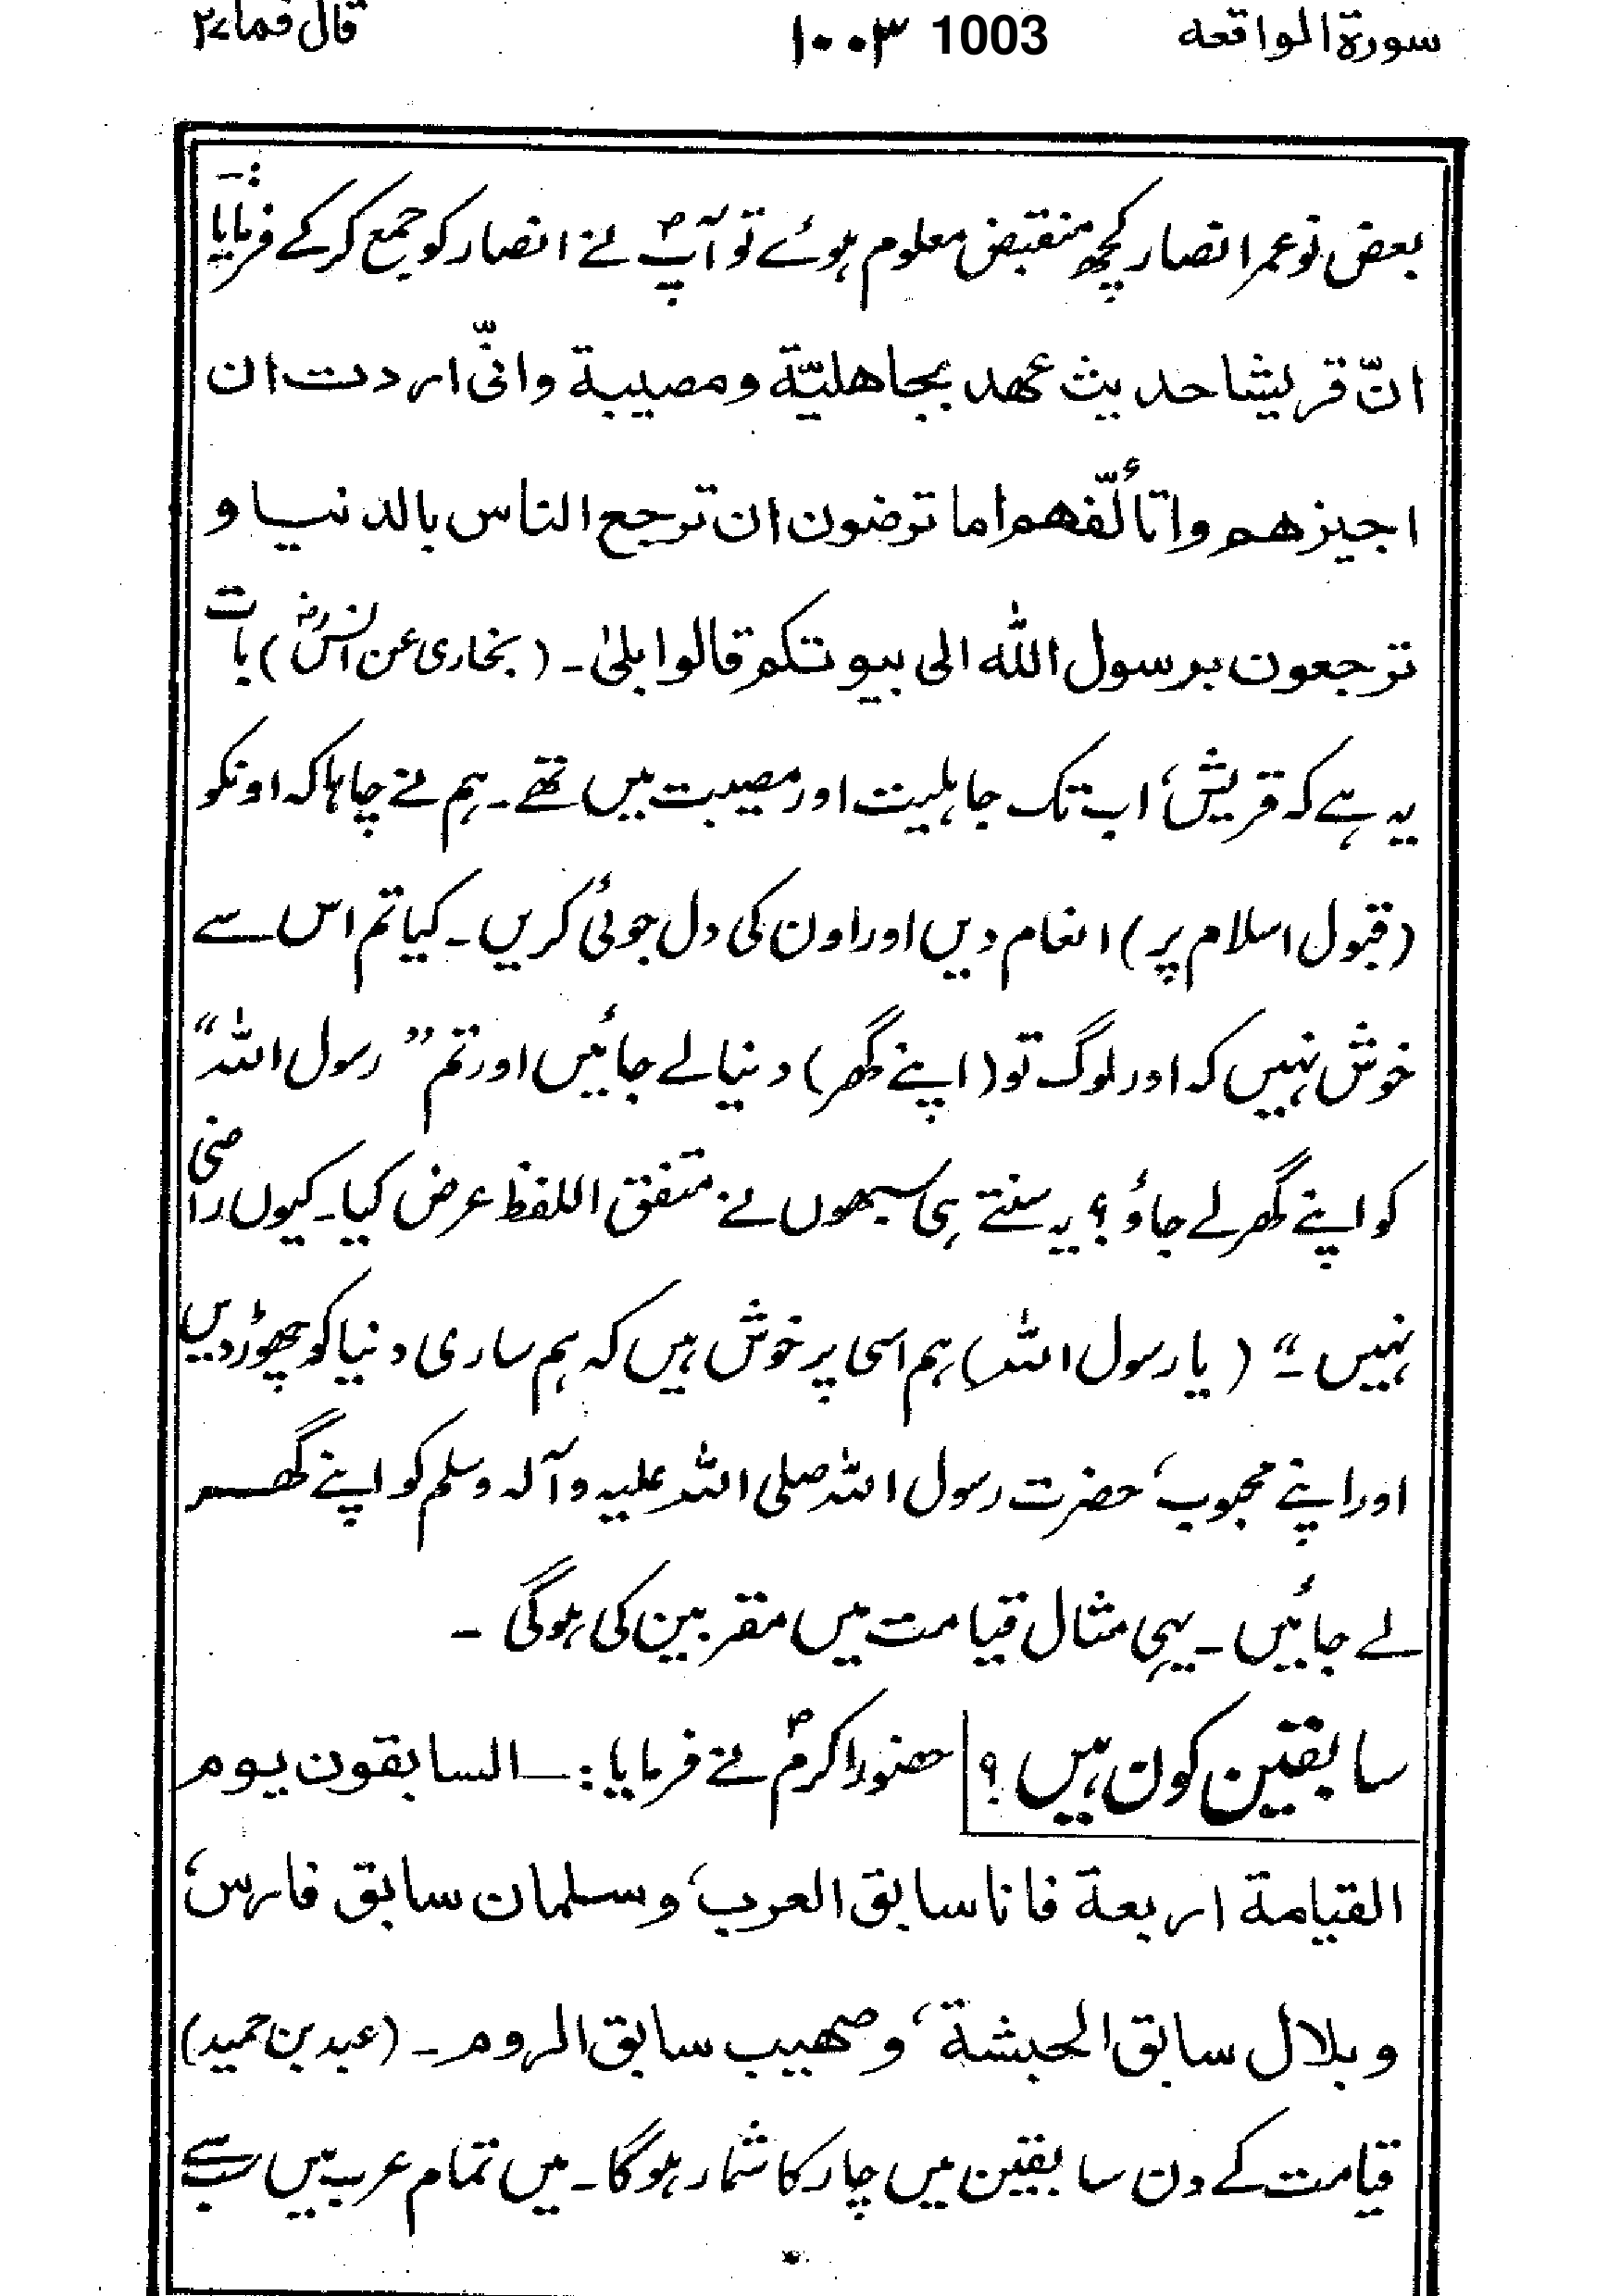 سورۃ الواقعه 1003 ۱۰۰۳ قال فما ۲۷
بعض نو عمر انصار کچھ منقبض معلوم ہوئے تو آپؐ نے انصار کو جمع کر کے فرمایا :-
انّ قریشا حدیث عهد بجاهلیّة ومصیبة وانّی اردت ان
اجیزهم واتألّفهم اما ترضون ان ترجع الناس بالدنیا و
ترجعون برسول اللّٰه الی بیوتکم قالوا بلیٰ۔ (بخاری عن انسؓ) بات
یہ ہے کہ قریش، اب تک جاہلیت اور مصیبت میں تھے۔ ہم نے چاہا کہ اونکو
(قبول اسلام پر) انعام دیں اور اون کی دل جوئی کریں۔ کیا تم اس سے
خوش نہیں کہ اور لوگ تو (اپنے گھر) دنیا لے جائیں اور تم ”رسول اللّٰہ“
کو اپنے گھر لے جاؤ؟ یہ سنتے ہی سبھوں نے متفق اللفظ عرض کیا۔ کیوں راضی
نہیں۔“ (یا رسول اللّٰہ) ہم اسی پر خوش ہیں کہ ہم ساری دنیا کو چھوڑ دیں
اور اپنے محبوب، حضرت رسول اللّٰہ صلی اللّٰہ علیہ و آلہ وسلم کو اپنے گھر
لے جائیں۔ یہی مثال قیامت میں مقربین کی ہوگی ۔
سابقین کون ہیں؟ حضور اکرمؐ نے فرمایا :— السابقون یوم
القیامة اربعة فانا سابق العرب، وسلمان سابق فارس،
وبلال سابق الحبشة، وصهیب سابق الروم۔ (عبد بن حمید)
قیامت کے دن سابقین میں چار کا شمار ہوگا۔ میں تمام عرب میں سب سے